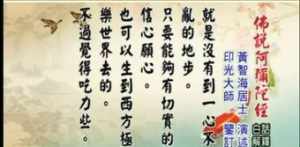 佛說阿彌陀經
白話解釋
黃智海居士 演述
印光大師 鑒訂
就是沒有到一心不
亂的地步。
只要能夠有切實的
信心願心。
也可以生到西方極
樂世界去的。
不過覺得吃力些。